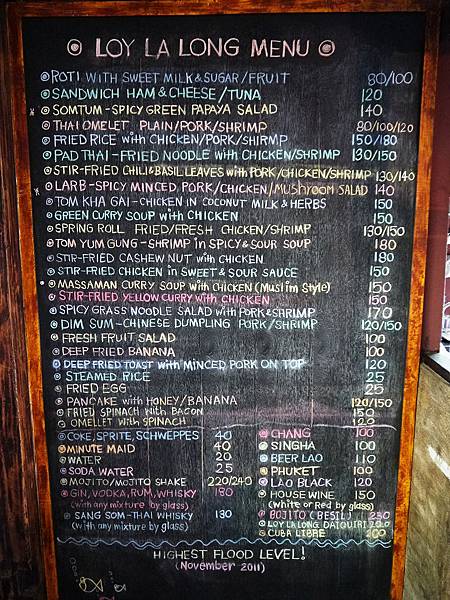 LOY LA LONG MENU
ROTI WITH SWEET MILK & SUGAR / FRUIT 80/100
SANDWICH HAM & CHEESE / TUNA 120
SOMTUM - SPICY GREEN PAPAYA SALAD 140
THAI OMELET PLAIN/PORK/SHRIMP 80/100/120
FRIED RICE with CHICKEN/PORK/SHIRMP 150/180
PAD THAI - FRIED NOODLE with CHICKEN/SHRIMP 130/150
STIR-FRIED CHILI & BASIL LEAVES with PORK/CHICKEN/SHRIMP 130/140
LARB - SPICY MINCED PORK/CHICKEN/MUSHROOM SALAD 140
TOM KHA GAI - CHICKEN in COCONUT MILK & HERBS 150
GREEN CURRY SOUP with CHICKEN 150
SPRING ROLL FRIED/FRESH CHICKEN/SHRIMP 130/150
TOM YUM GUNG - SHRIMP in SPICY & SOUR SOUP 180
STIR-FRIED CASHEW NUT with CHICKEN 180
STIR-FRIED CHICKEN in SWEET & SOUR SAUCE 150
MASSAMAN CURRY SOUP with CHICKEN (Muslim Style) 150
STIR-FRIED YELLOW CURRY with CHICKEN 150
SPICY GRASS NOODLE SALAD with PORK & SHRIMP 170
DIM SUM - CHINESE DUMPLING PORK/SHRIMP 120/150
FRESH FRUIT SALAD 100
DEEP FRIED BANANA 100
DEEP FRIED TOAST with MINCED PORK ON TOP 120
STEAMED RICE 25
FRIED EGG 25
PANCAKE with HONEY/BANANA 120/150
FRIED SPINACH with BACON 150
OMELLET with SPINACH 120
COKE, SPRITE, SCHWEPPES 40
MINUTE MAID 40
WATER 20
SODA WATER 25
MOJITO/MOJITO SHAKE 220/240
GIN, VODKA, RUM, WHISKY 180
(with any mixture by glass)
SANG SOM - THAI WHISKY 130
(with any mixture by glass)
CHANG 100
SINGHA 100
BEER LAO 110
PHUKET 100
LAO BLACK 120
HOUSE WINE 150
(white or Red by glass)
BOJITO (BESIL) 230
LOY LA LONG DAIQUIRI 220
CUBA LIBRE 200
HIGHEST FLOOD LEVEL!
(November 2011)